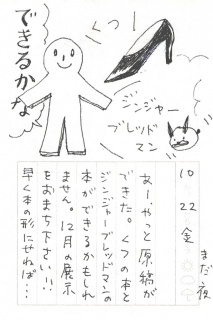 できるかな
くつ！
ジンジャー
ブレッド
マン
まだ夜
10/22 金
あーやっと原稿が
できた。くつの本と
ジンジャーブレッドマンの
本ができるかもしれ
ません。12月の展示
をおまち下さい！！
早く本の形にせねば…